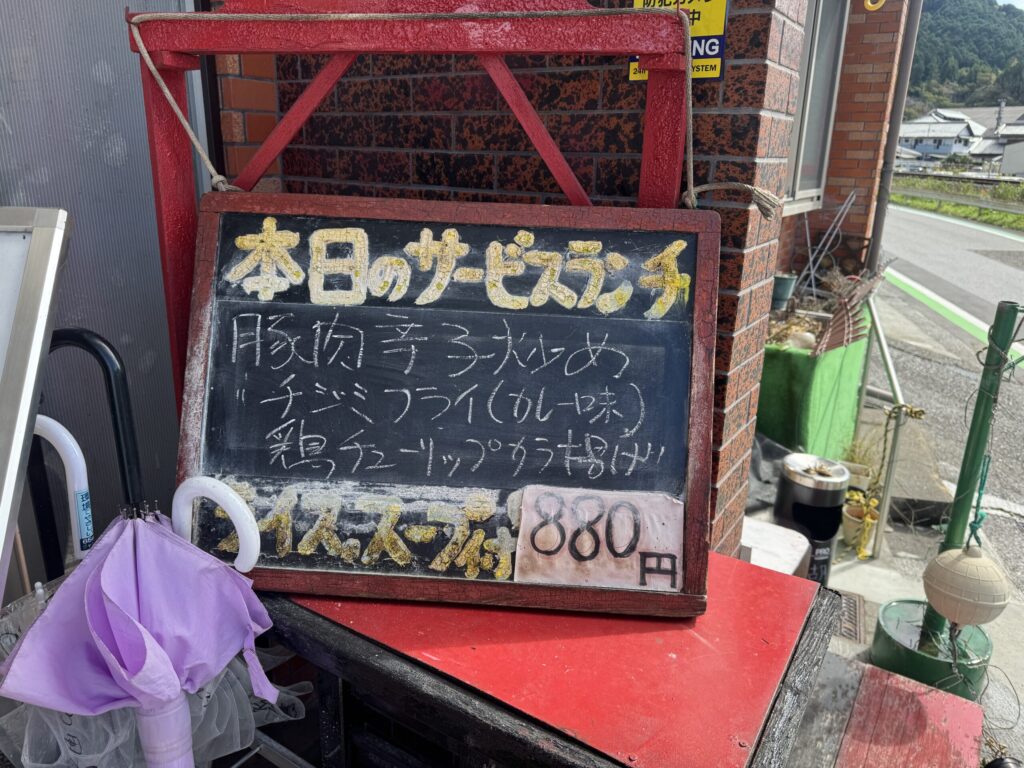 防犯カメラ
中
NG
24h SYSTEM
本日のサービスランチ
豚肉辛子炒め
〃チジミフライ(カレー味)
鶏チューリップカラ揚げ
ライス、スープ付
880円